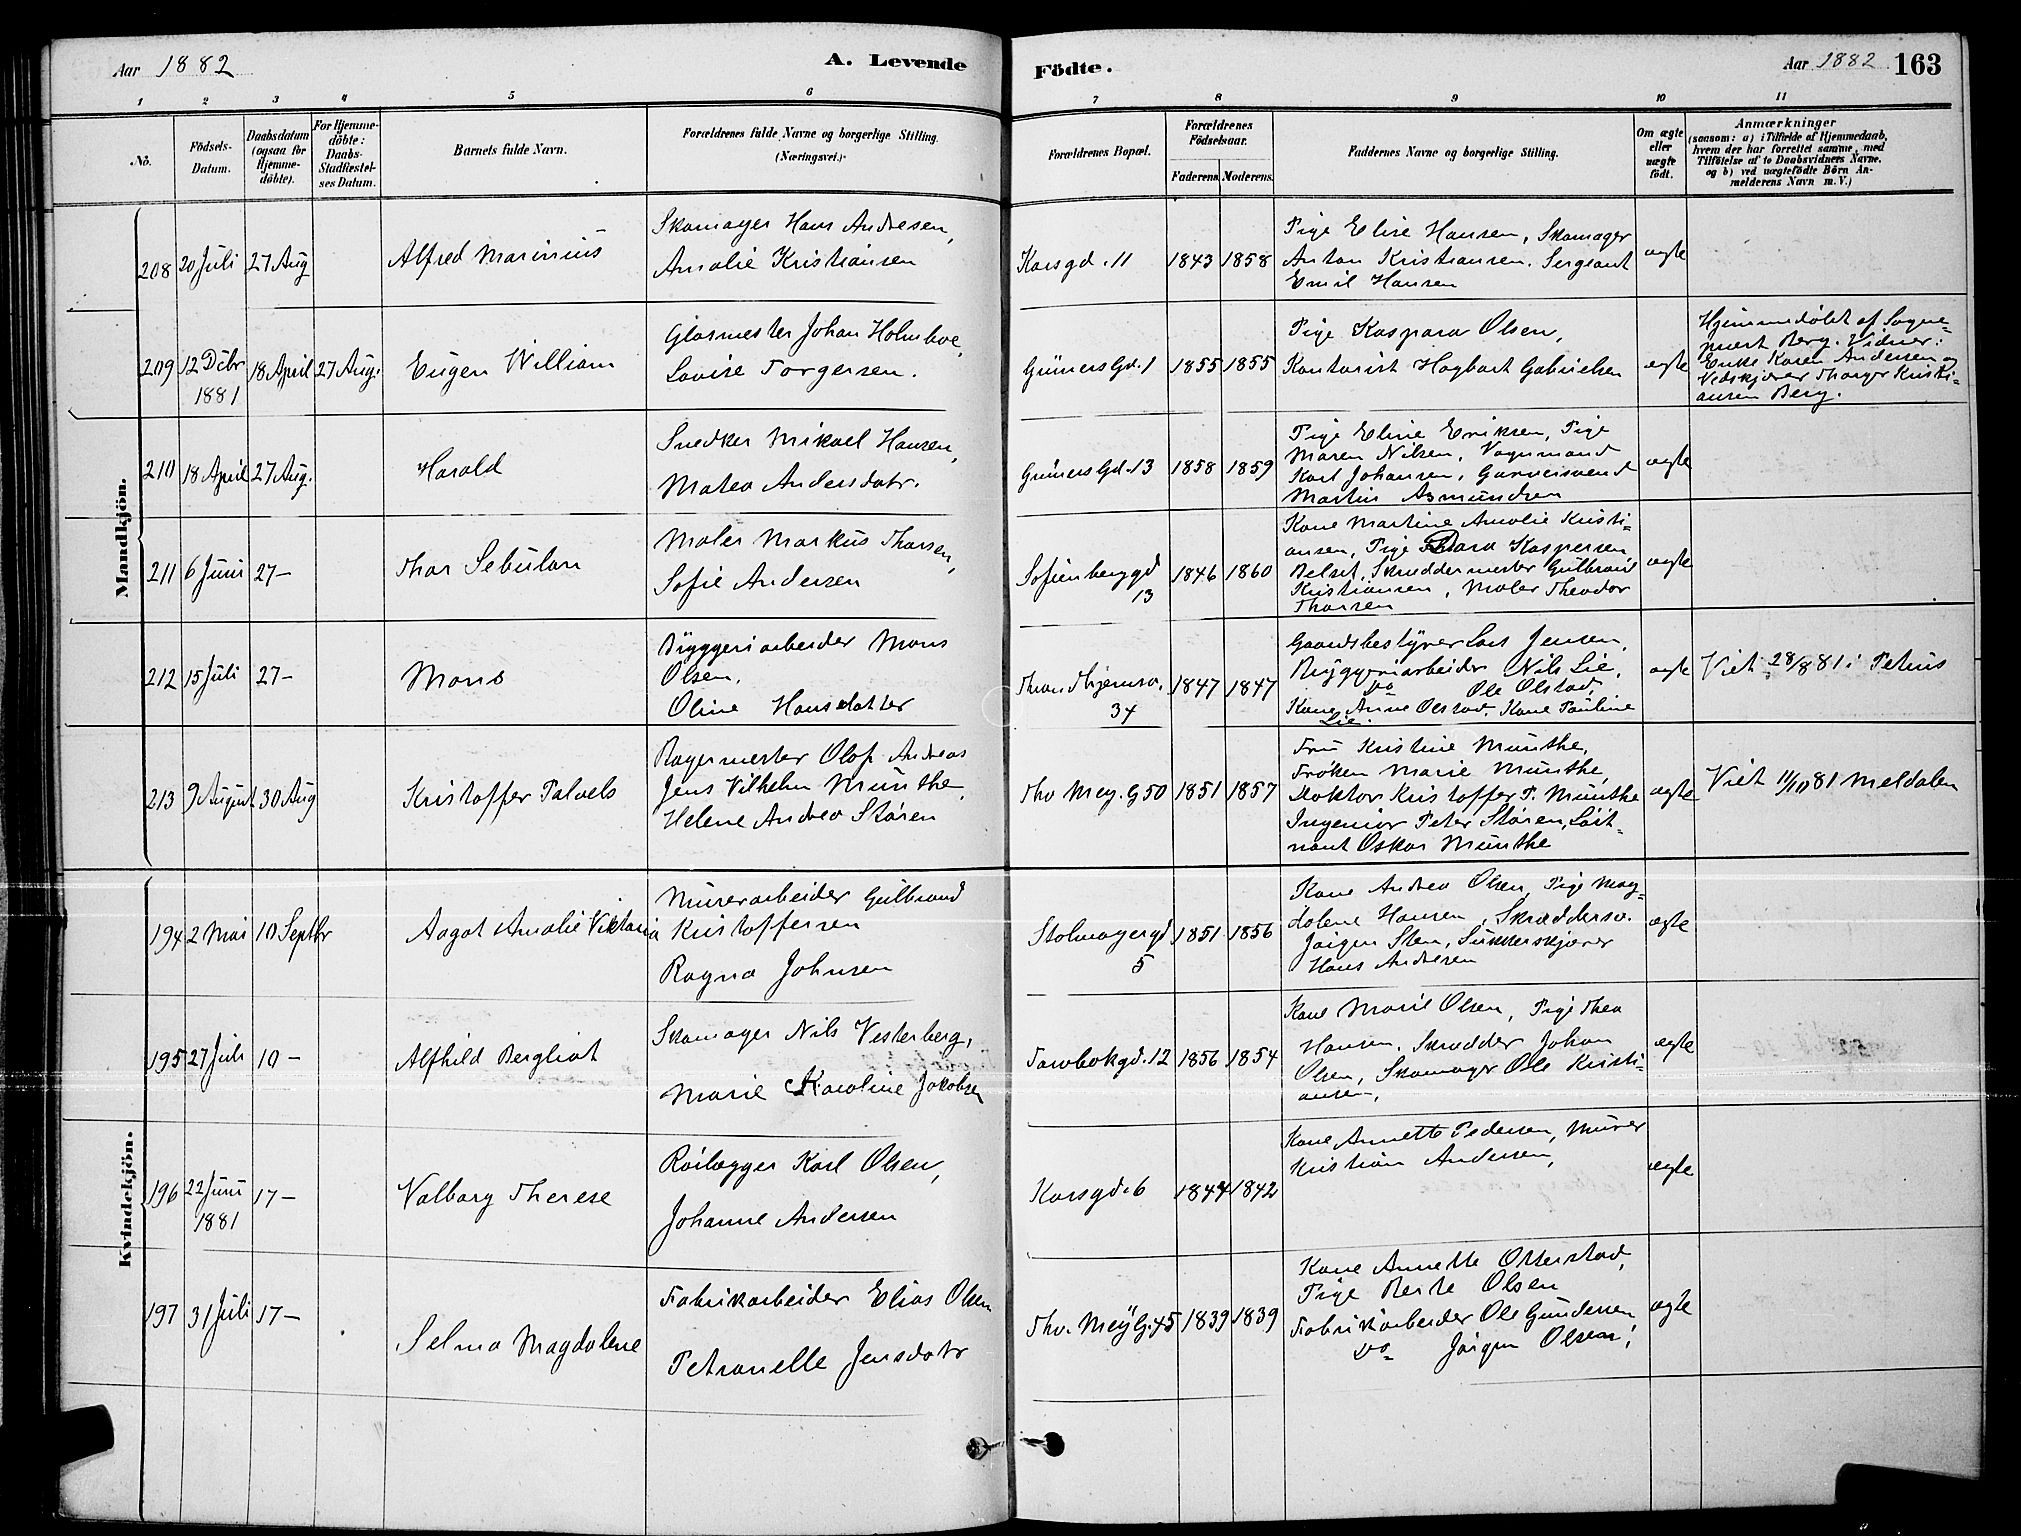 Aar 1882
A. Levende
Födte.
Aar 1882
163
1 2 3 4 5 6 7 8 9 10 11
No.
Födsels-
Datum.
Daabsdatum
(ogsaa for
Hjemme-
döbte).
For Hjemme-
döbte:
Daabs-
Stadfæstel-
ses Datum.
Barnets fulde Navn.
Forældrenes fulde Navne og borgerlige Stilling.
(Næringsvei.)
Forældrenes Bopæl.
Forældrenes
Födselsaar.
Faderens. Moderens.
Faddernes Navne og borgerlige Stilling.
Om ægte
eller
uægte
födt.
Anmærkninger
(saasom: a) i Tilfælde af Hjemmedaab,
hvem der har forrettet samme, med
Tilföielse af to Daabsvidners Navne,
og b) ved uægtefödte Börn An-
melderens Navn m. V.)
Mandkjön.
208 20 Juli 27 Aug
Alfred Marinius
Skomager Hans Andresen,
Amalie Kristiansen
Korsgd. 11 1843 1858
Pige Elise Hansen, Skomager
Anton Kristiansen. Sergeant
Emil Hansen
ægte
209 12 Decbr 18 April 27 Aug.
1881
Eugen William
Glasmester Johan Holmboe,
Lovise Torgersen.
Grüners Gd. 1 1855 1855
Pige Kaspara Olsen,
Kontorist Hagbart Gabrielsen
ægte
Hjemmedøbt af Sogne-
præst Berg. Vidner:
Enke Karen Andersen og
Vedskjærer Thorger Kristi-
ansen Berg.
210 18 April 27 Aug.
Harald
Snedker Mikael Hansen,
Matea Andersdatr.
Grüners Gd. 13 1858 1859
Pige Eline Eriksen, Pige
Maren Nilsen, Vognmand
Karl Johansen, Garversvend
Martin Asmundsen
ægte
211 6 Juni 27 —
Thor Sebulon
Maler Markus Thorsen,
Sofie Andersen
Sofienberggd
13
1846 1860
Kone Martine Amalie Kristi-
ansen, Pige Thora Kaspersen
Belset, Skræddermester Gulbrand
Kristiansen, Maler Theodor
Thorsen
ægte
212 15 Juli 27 —
Mons
Bryggeriarbeider Mons
Olsen,
Oline Hansdatter
Throndhjemsv.
34
1847 1847
Gaardsbestyrer Lars Jensen,
Bryggeriarbeider Nils Lie,
Do Ole Olstad,
Kone Anne Olstad, Kone Pauline
Lie.
ægte
Viet 28/8 81 i Petrus
213 9 August 30 Aug
Kristoffer Talvels
Bagermester Olof Andreas
Jens Vilhelm Munthe,
Helene Andrea Støren
Thv Mey. G 50 1851 1857
Fru Kristine Munthe,
Frøken Marie Munthe,
Doktor Kristoffer P. Munthe
Ingeniør Peter Støren, Løit-
nant Oskar Munthe
ægte
Viet 11/10 81 Meldalen
Kvindekjön.
194 2 Mai 10 Septbr
Aagot Amalie Viktoria
Murerarbeider Gulbrand
Kristoffersen
Ragna Johnsen
Stolmagergd
5
1851 1856
Kone Andrea Olsen, Pige Mag-
dalene Hansen, Skræddersv.
Jørgen Sten, Sukkerskjærer
Hans Andresen
ægte
195 27 Juli 10 —
Alfhild Bergliot
Skomager Nils Vesterberg,
Marie Karoline Jakobsen
Farvbakgd. 12 1856 1854
Kone Marie Olsen, Pige Thea
Hansen, Skrædder Johan
Olsen, Skomager Ole Kristi-
ansen,
ægte
196 22 Juni 17 —
1881
Valborg Therese
Rørlægger Karl Olsen,
Johanne Andersen
Korsgd. 6 1844 1842
Kone Annette Pedersen, Murer
Kristian Andersen,
ægte
197 31 Juli 17 —
Selma Magdalene
Fabrikarbeider Elias Olsen
Petronelle Jensdatr
Thv. Mey G. 45 1839 1839
Kone Annette Otterstad,
Pige Berte Olsen
Fabrikarbeider Ole Gundersen
Do Jørgen Olsen,
ægte